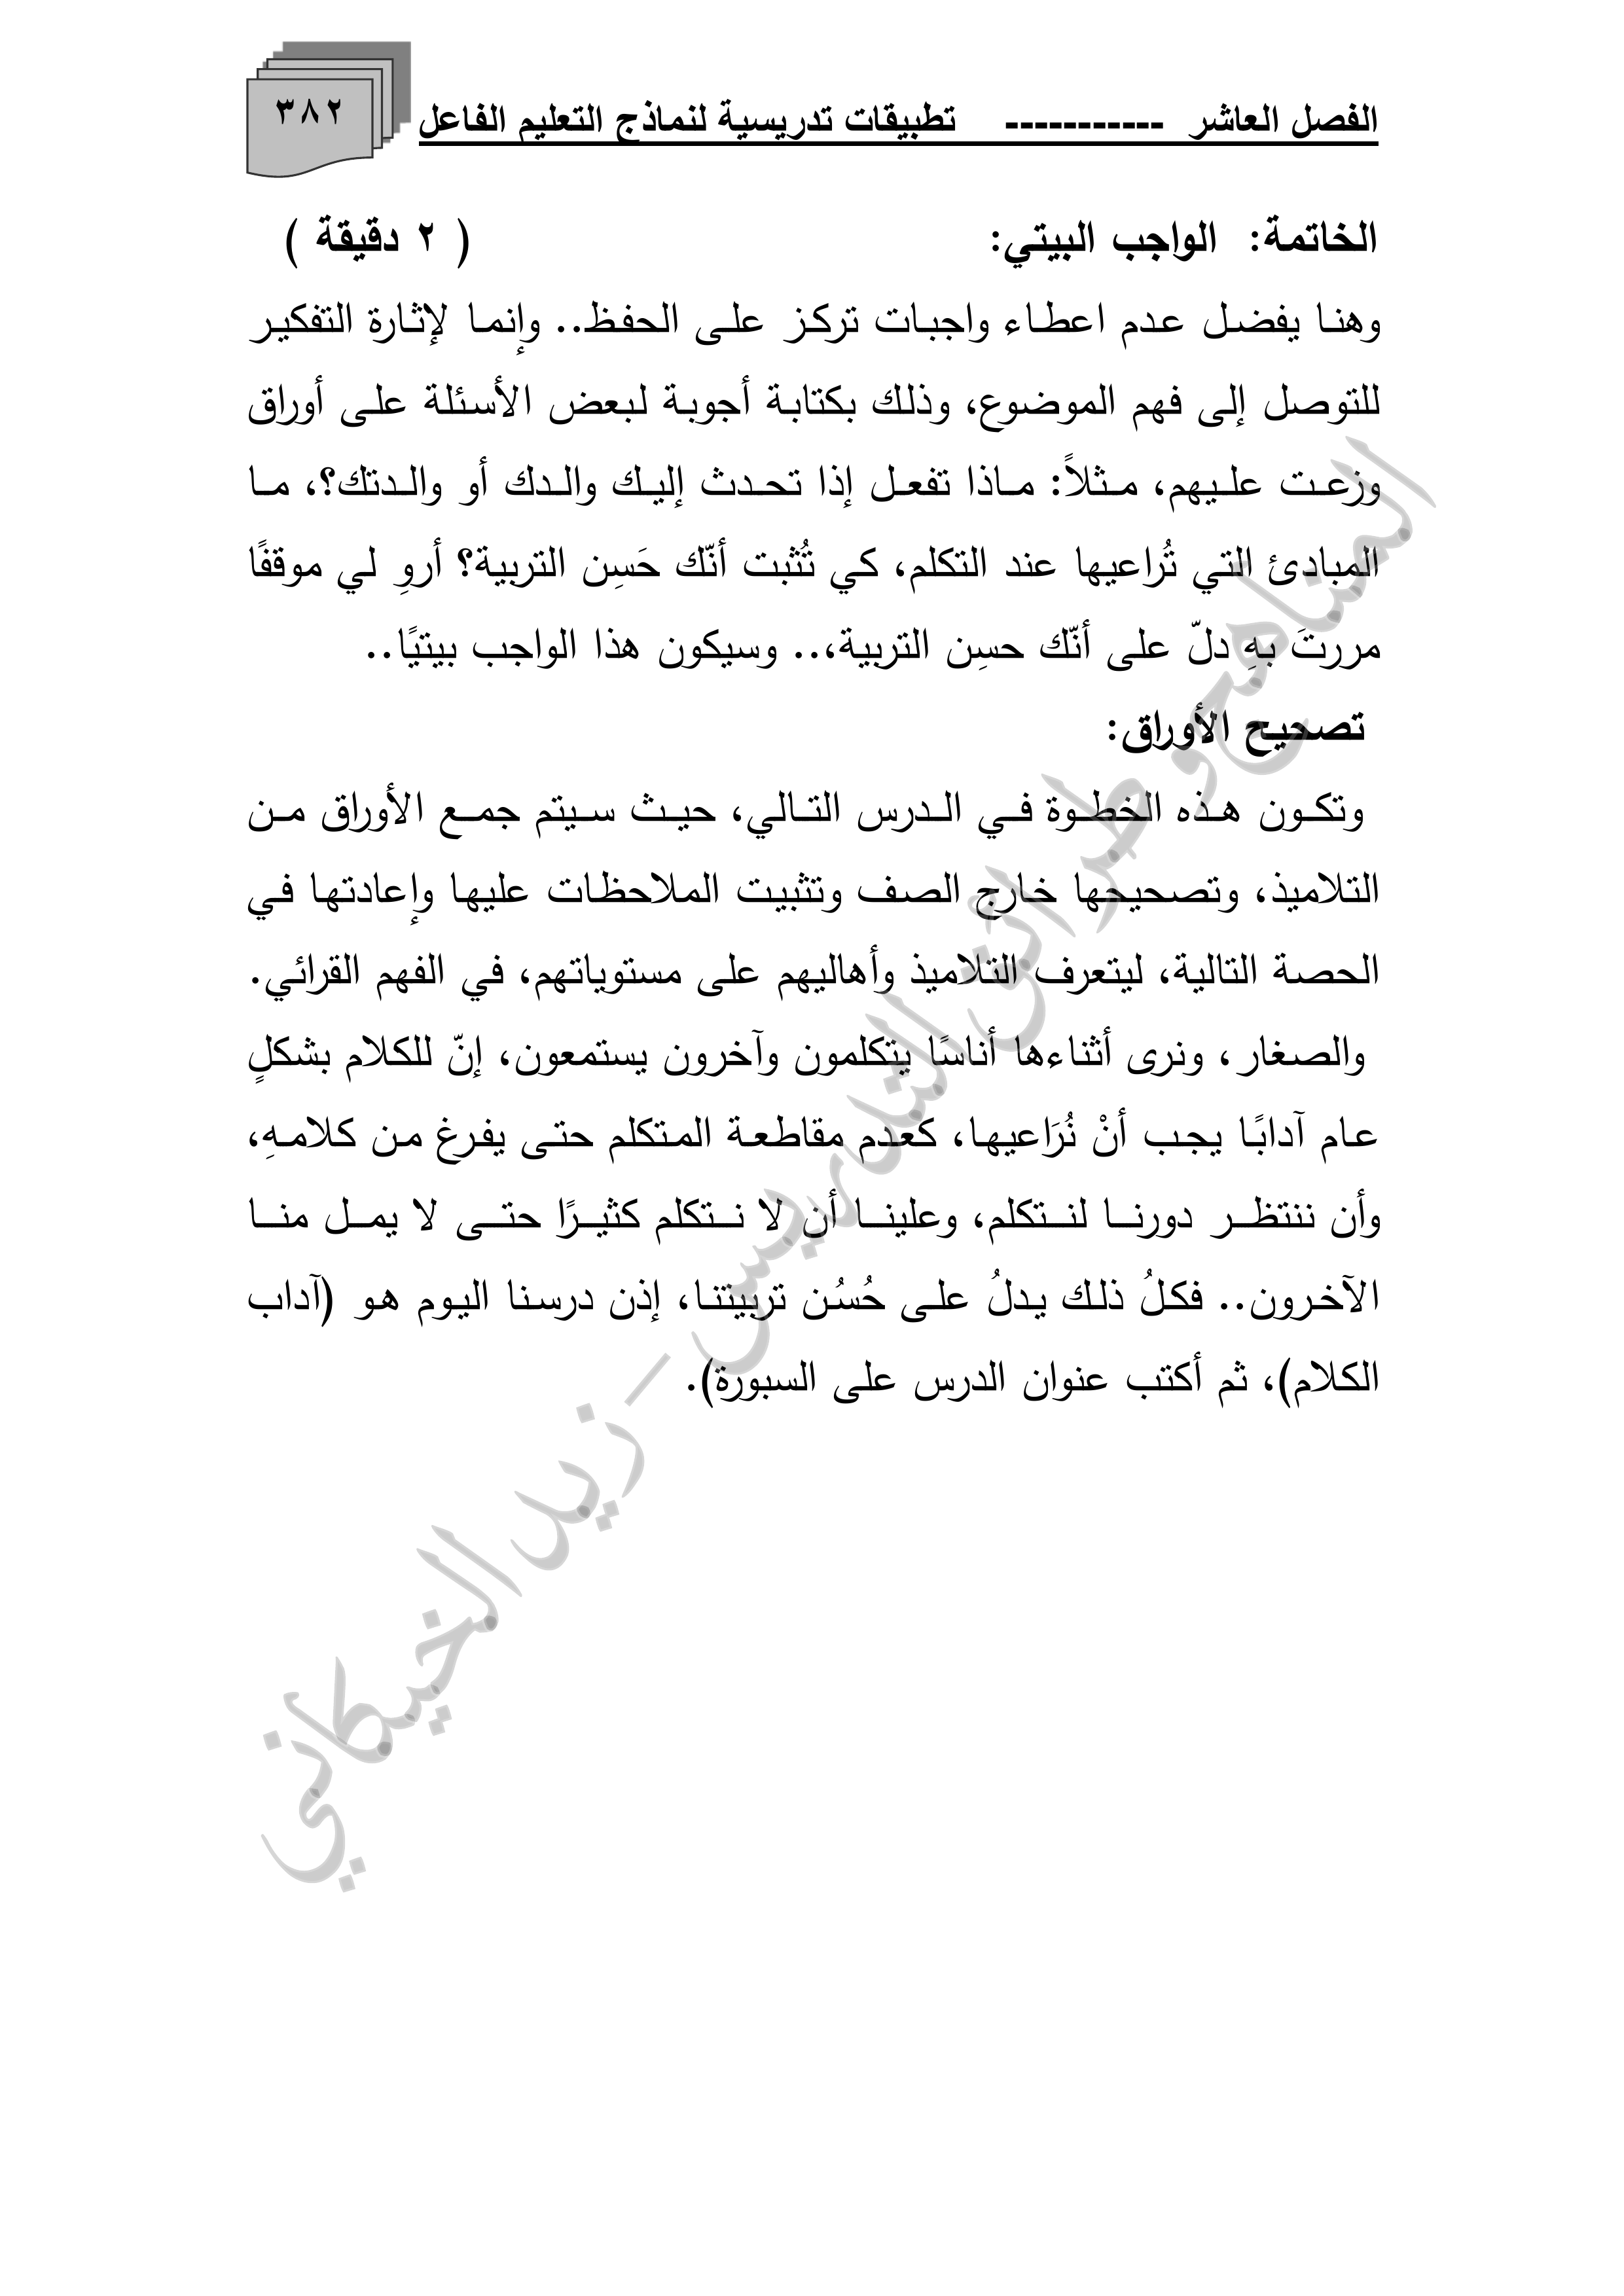 الفصل العاشر ----------- تطبيقات تدريسية لنماذج التعليم الفاعل
٣٨٢
الخاتمة: الواجب البيتي: ( ٢ دقيقة )
وهنا يفضل عدم اعطاء واجبات تركز على الحفظ.. وإنما لإثارة التفكير
للتوصل إلى فهم الموضوع، وذلك بكتابة أجوبة لبعض الأسئلة على أوراق
وزعت عليهم، مثلاً: ماذا تفعل إذا تحدث إليك والدك أو والدتك؟، ما
المبادئ التي تُراعيها عند التكلم، كي تُثبت أنّك حَسِن التربية؟ أروِ لي موقفًا
مررتَ بهِ دلّ على أنّك حسِن التربية،.. وسيكون هذا الواجب بيتيًا..
تصحيح الأوراق:
وتكون هذه الخطوة في الدرس التالي، حيث سيتم جمع الأوراق من
التلاميذ، وتصحيحها خارج الصف وتثبيت الملاحظات عليها وإعادتها في
الحصة التالية، ليتعرف التلاميذ وأهاليهم على مستوياتهم، في الفهم القرائي.
والصغار، ونرى أثناءها أناسًا يتكلمون وآخرون يستمعون، إنّ للكلام بشكلٍ
عام آدابًا يجب أنْ نُرَاعيها، كعدم مقاطعة المتكلم حتى يفرغ من كلامهِ،
وأن ننتظر دورنا لنتكلم، وعلينا أن لا نتكلم كثيرًا حتى لا يمل منا
الآخرون.. فكلُ ذلك يدلُ على حُسُن تربيتنا، إذن درسنا اليوم هو (آداب
الكلام)، ثم أكتب عنوان الدرس على السبورة).
المناهج وطرائق التدريس - زيد الخيكاني